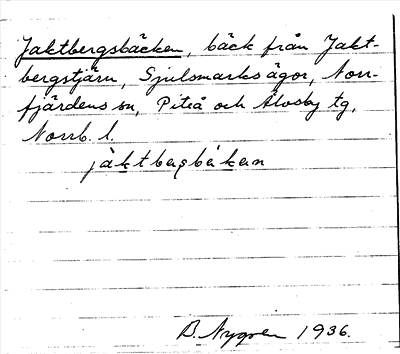 Jaktbergsbäcken, bäck från Jakt-
bergstjärn, Sjulsmarks ägor, Norr-
fjärdens sn, Piteå och Älvsby tg,
Norrb. l.
jáktbærsbèkæn
B. Nygren 1936.